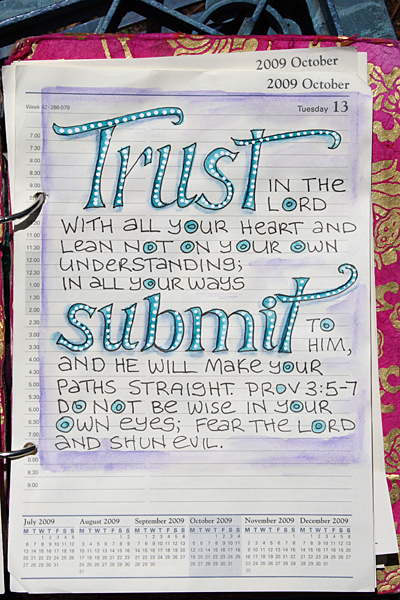 2009 October
2009 October
Week 42 · 286-079
Tuesday 13
Trust IN THE
LORD
WITH ALL YOUR HEART AND
LEAN NOT ON YOUR OWN
UNDERSTANDING;
IN ALL YOUR WAYS
submit TO
HIM,
AND HE WILL MAKE YOUR
PATHS STRAIGHT. PROV 3:5-7
DO NOT BE WISE IN YOUR
OWN EYES; FEAR THE LORD
AND SHUN EVIL.
7.00
7.30
8.00
8.30
9.00
10.00
10.30
11.00
11.30
12.00
12.30
1.00
1.30
2.00
2.30
3.00
3.30
4.00
4.30
5.00
5.30
6.00
6.30
7.00
8.00
8.30
9.00
July 2009 August 2009 September 2009 October 2009 November 2009 December 2009
M T W T F S S M T W T F S S M T W T F S S M T W T F S S M T W T F S S M T W T F S S